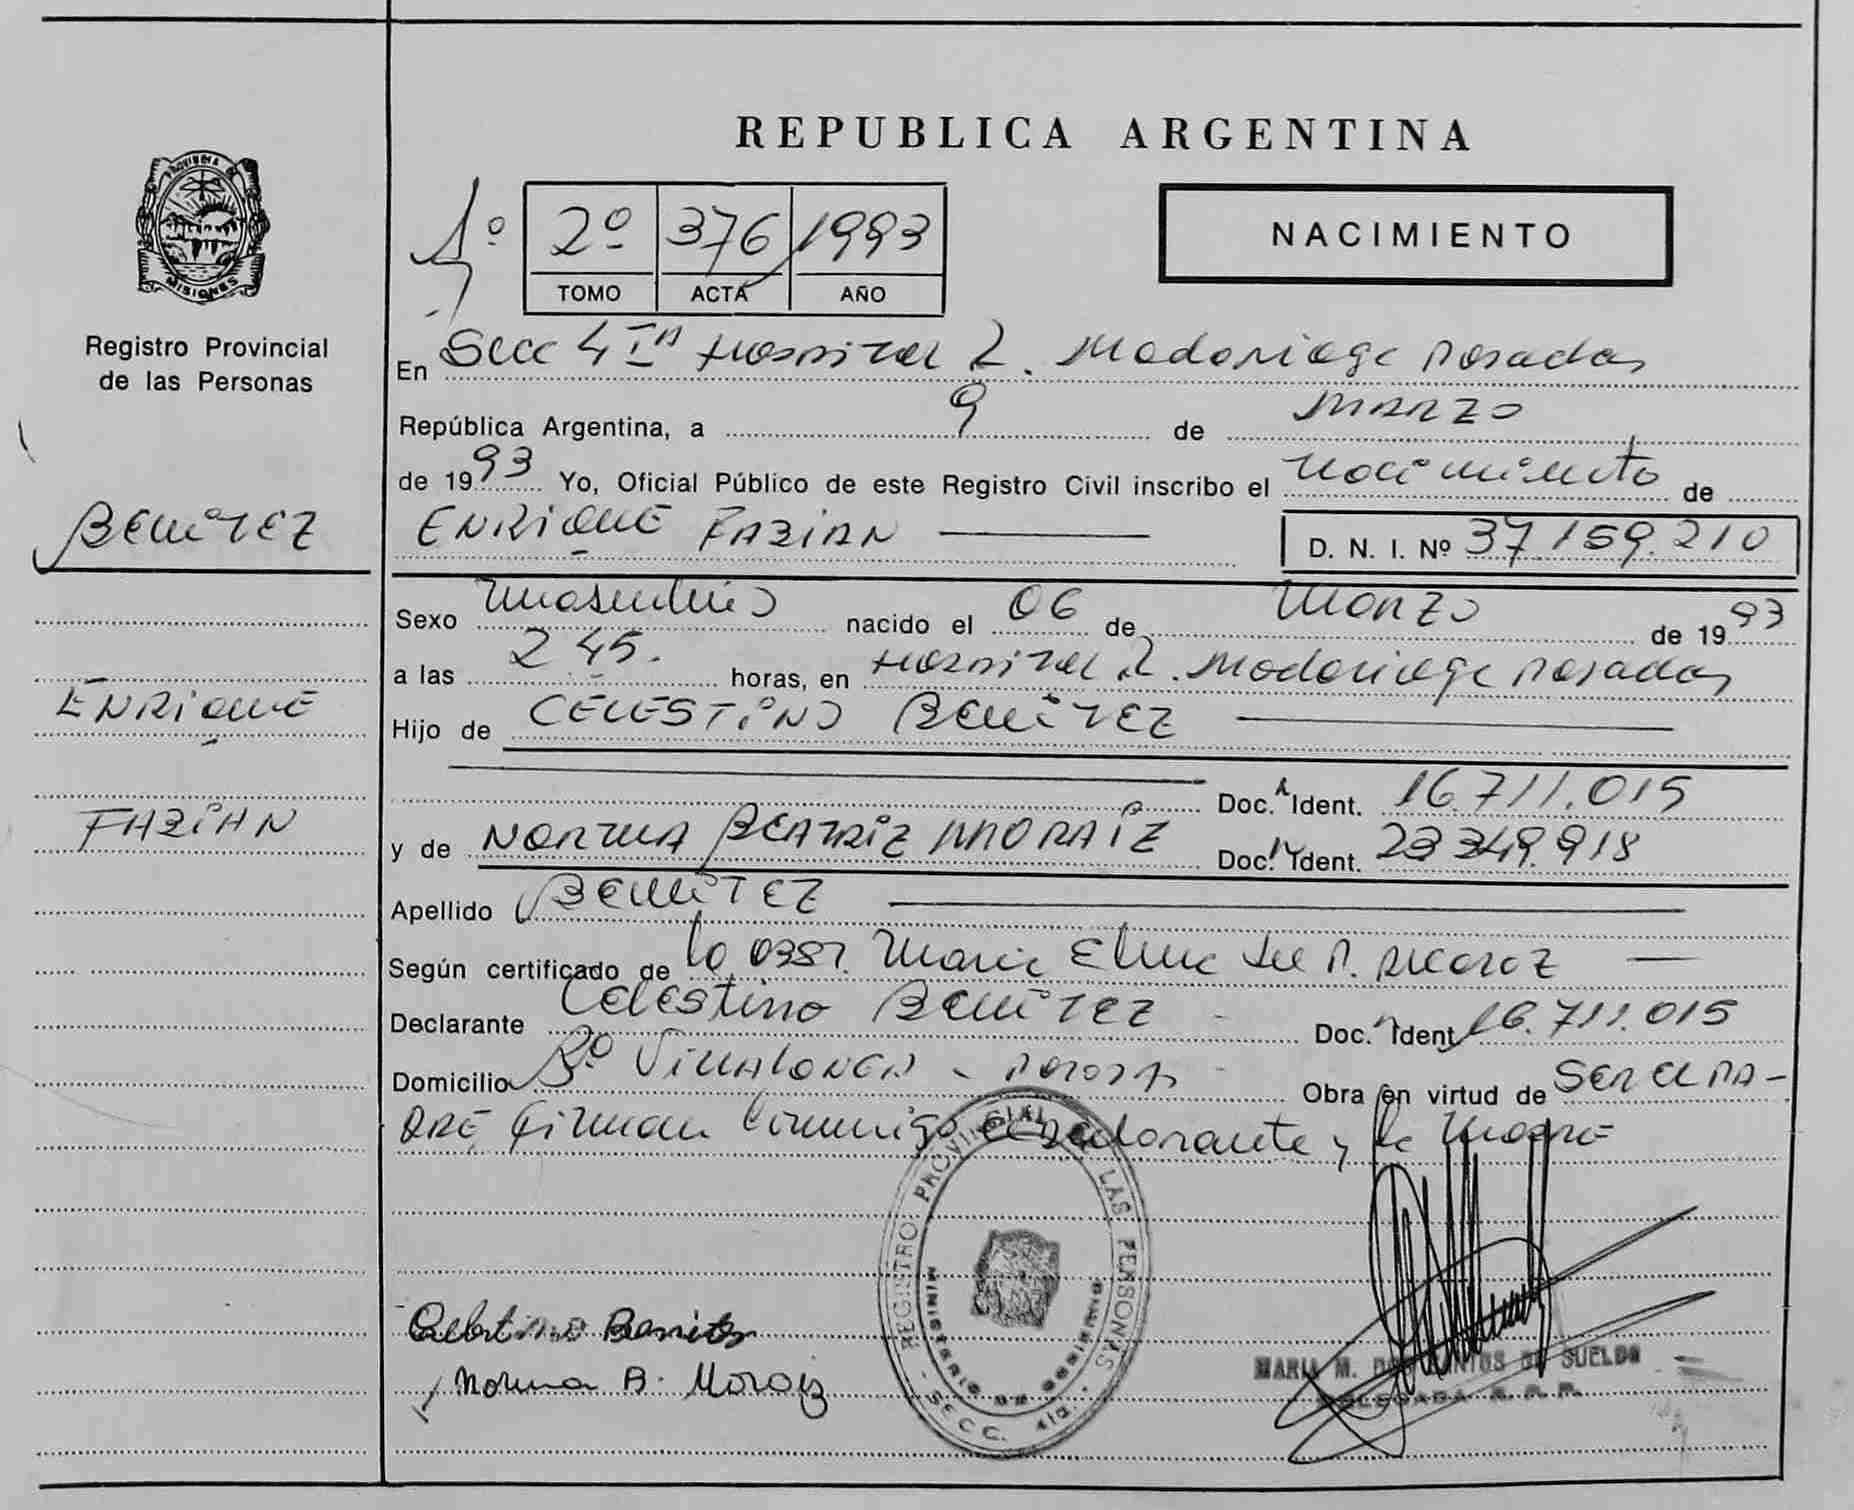 REPUBLICA ARGENTINA
PROVINCIA DE
MISIONES
Registro Provincial
de las Personas
2º 376 1993
TOMO ACTA AÑO
NACIMIENTO
En Secc 4ta Hospital R. Madariaga Posadas
República Argentina, a 9 de MARZO
de 1993 Yo, Oficial Público de este Registro Civil inscribo el Nacimiento de
BENITEZ
ENRIQUE FABIAN
D. N. I. Nº 37.159.210
Sexo Masculino nacido el 06 de Marzo de 1993
a las 2 45. horas, en Hospital R. Madariaga Posadas
ENRIQUE
Hijo de CELESTINO BENITEZ
Doc. Ident. 16.711.015
FABIAN
y de NORMA BEATRIZ MORAIZ Doc. Ident. 23 349.918
Apellido BENITEZ
Según certificado de la 0387. Maria Elena del P. Alcaraz
Declarante Celestino BENITEZ Doc. Ident 16.711.015
Domicilio Bº VILLALONGA - Posadas Obra en virtud de SER EL PA-
DRE, Firman Conmigo el declarante y la Madre
REGISTRO PROVINCIAL LAS PERSONAS
MINISTERIO DE GOBIERNO
- SECC. 4ta. -
Celestino Benitez
Norma B. Moraiz
MARIA M. DOS SANTOS DE SUELDO
DELEGADA R. P. P.